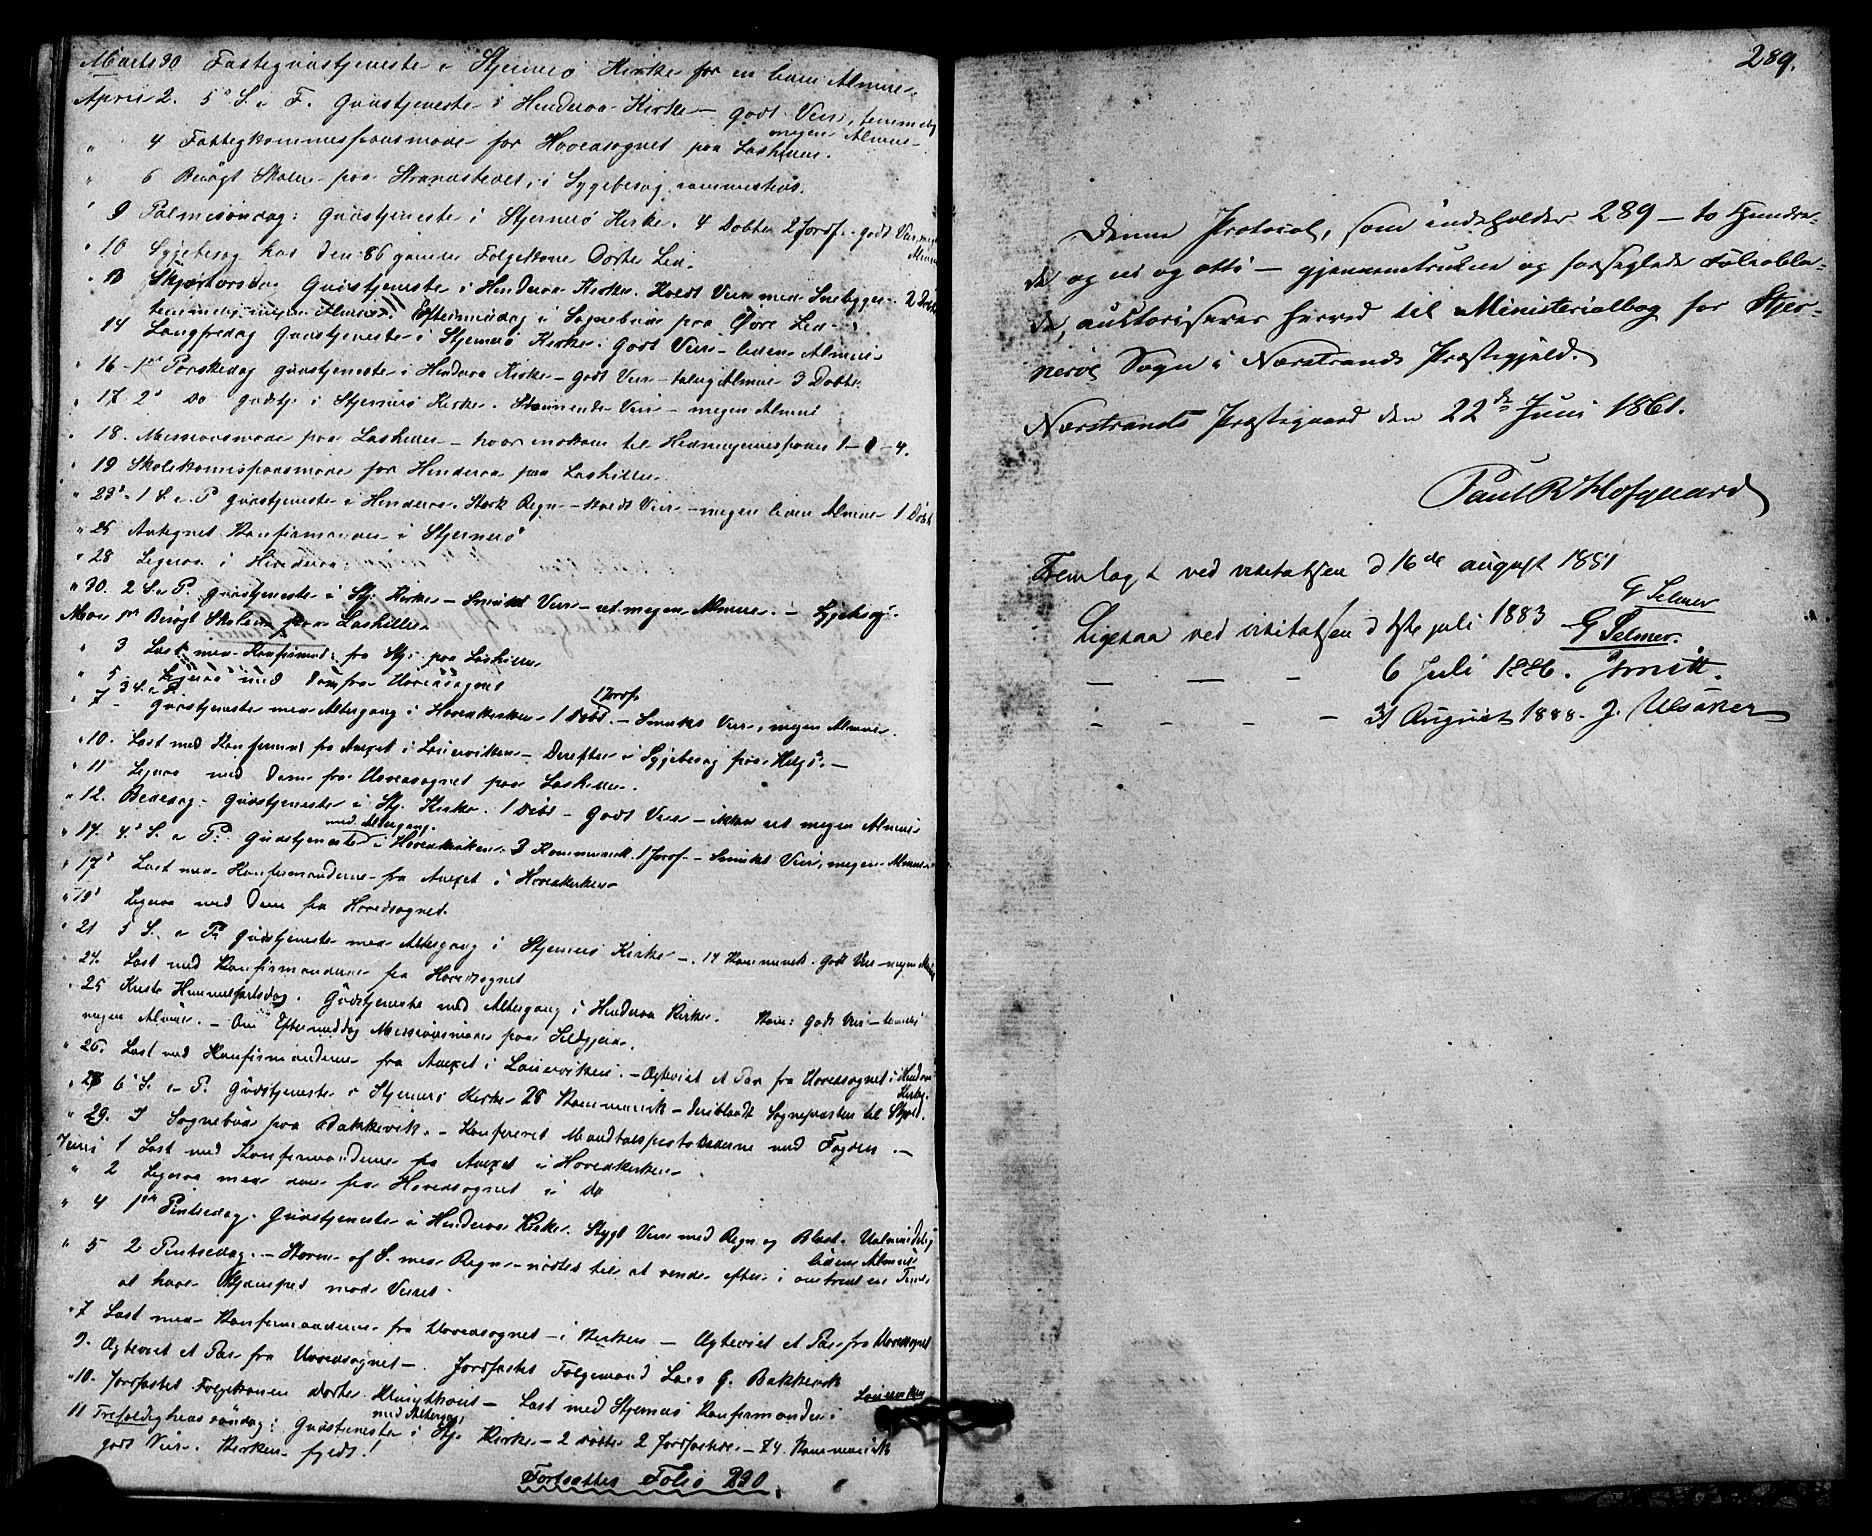 Marts 30 Fastegudstjeneste i Stjernerö Kirke for en liden Almue.
April 2. 5te S. i F. Gudstjeneste i Hinderaa Kirke – godt Veir, temmelig
megen Almue.
" 4 Fattigkommissionsmøde for Hovedsognet paa Lashillen.
" 6 Besøgt Skolen paa Strandstedet, i Sygebesøg sammesteds.
" 9 Palmesöndag: Gudstjeneste i Stjernerö Kirke. 4 Döbte 2 Jordf. godt Veir, megen
Almue
" 10 Sygebesøg hos den 86 gamle Folgekone Dorte Lea.
" 13 Skjærtorsdag Gudstjeneste i Hinderaa Kirke. Koldt Veir med Snebyger. 2 Döbte
temmelig megen Almue. Eftermiddag i Sognebud paa Øvre Lea.
14 Langfredag Gudstjeneste i Stjernerö Kirke. Godt Veir – liden Almue
" 16 – 1ste Paaskedag gudstjeneste i Hinderaa Kirke – godt Veir – talrig Almue 3 Döbte
" 17 2den Do gudstj. i Stjernerö Kirke. Veir – megen Almue
" 18. Missionsmøde paa Lashillen – hvor indkom til Hedningemissionen 1 – 0 – 4.
" 19 Skolekommissionsmøde for Hinderaa paa Lashillen.
" 23de 1 S. e. P. gudstjeneste i Hinderaa. Stærk Regn – koldt Veir – megen liden Almue 1 Döbt
" 25 Antegnet Konfirmander i Stjernerö
" 28 Ligesaa i Hinderaa
" 30. 2 S. e. P. gudstjeneste i Stj. Kirke – Smukt Veir – ret megen Almue. – Sygebesög.
Mai 1ste Besögt Skolen paa Lashillen
" 3 Læst med Konfirmand: fra Stj. paa Lashillen
" 5 Ligesaa med dem fra Hovedsognet
" 7 – 3 S. e. P. Gudstjeneste med Altergang i Hovedkirken – 1 Döbt. 1 Jordf. – Smukt Veir, megen Almue.
" 10. Læst med Konfirmand: fra Anexet i – Derefter i Sygebesøg paa Helgö. –
" 11 Ligesaa med dem fra Hovedsognet paa Lashillen.
" 12. Bededag – Gudstjeneste i Stj. Kirke. 1 Döbt – Godt Veir – ikke ret megen Almue
" 14. 4de S. e. P. Gudstjeneste med Altergang i Hovedkirken. 3 Kommunik. 1 Jordf. – Smukt Veir, megen Almue
" 17 Læst med Konfirmanderne fra Anexet i Hovedkirken
" 19 Ligesaa med dem fra Hovedsognet.
" 21 5 S. e. P. Gudstjeneste med Altergang i Stjernerö Kirke –. 14 Kommunik. Godt Veir – megen
" 24. Læst med Konfirmanderne fra Hovedsognet
" 25 Kristi Himmelfartsdag. Gudstjeneste med Altergang i Hinderaa Kirke. Kom: Godt Veir –
megen Almue. – Om Eftermiddag Missionsmøde paa
" 26. Læst med Konfirmanderne fra Anexet i – Ægteviet et Par fra Hovedsognet i Hinderaa
Kirke.
" 28 6te S. e. P. Gudstjeneste i Stjernerö Kirke 28 Kommunik – deriblandt Sognepresten til Skjold.
" 29. I Sognebud paa Bakkevik. – Konfereret Mandtalsprotokollerne med Fogden. –
Juni 1 Læst med Konfirmanderne fra Anexet i Hovedkirken
" 2 Ligesaa med dem fra Hovedsognet i do
" 4 1ste Pintsedag. Gudstjeneste i Hinderaa Kirke. Stygt Veir med Regn og Blæst. Ualmindelig
liden Almue
" 5 2 Pintsedag. – Storm af S. med Regn – nödtes til at vende efter i omtrent en Time
at have Kjæmpet mod Veiret.
" 7 Læst med Konfirmanderne fra Hovedsognet – i Kirken – Ægteviet et Par fra Hovedsognet
9. Ægteviet et Par fra Hovedsognet –. Jordfæstet Folgemand Lars G. Bakkevik
" 10. Jordfæstet Folgekonen Dorte – Læst med Stjernerö Konfirmander i
11 Trefoldighedssöndag: Gudstjeneste med Altergang i Stj. Kirke – 2 döbte 2 Jordfæstede – 24. Kommunik
godt Veir. Kirken fyldt!
Fortsættes Folio 230.
289.
Denne Protocol, som indeholder 289 – to Hundre-
de og ni og otti – gjennemtrukne og forseglede Folioblá-
de, autoriseres herved til Ministerialbog for Stjer-
nerøe Sogn i Nærstrands Præstegjeld.
Nærstrands Præstegaard den 22de Juni 1861.
Paul R Hofgaard
Fremlagt ved visitatsen d 16de august 1881
G Selmer
Ligesaa ved visitatsen d 1ste juli 1883 G Selmer.
— — — 6 Juli 1886. Smitt.
— — — — 31 August 1888. J. Ulsaker